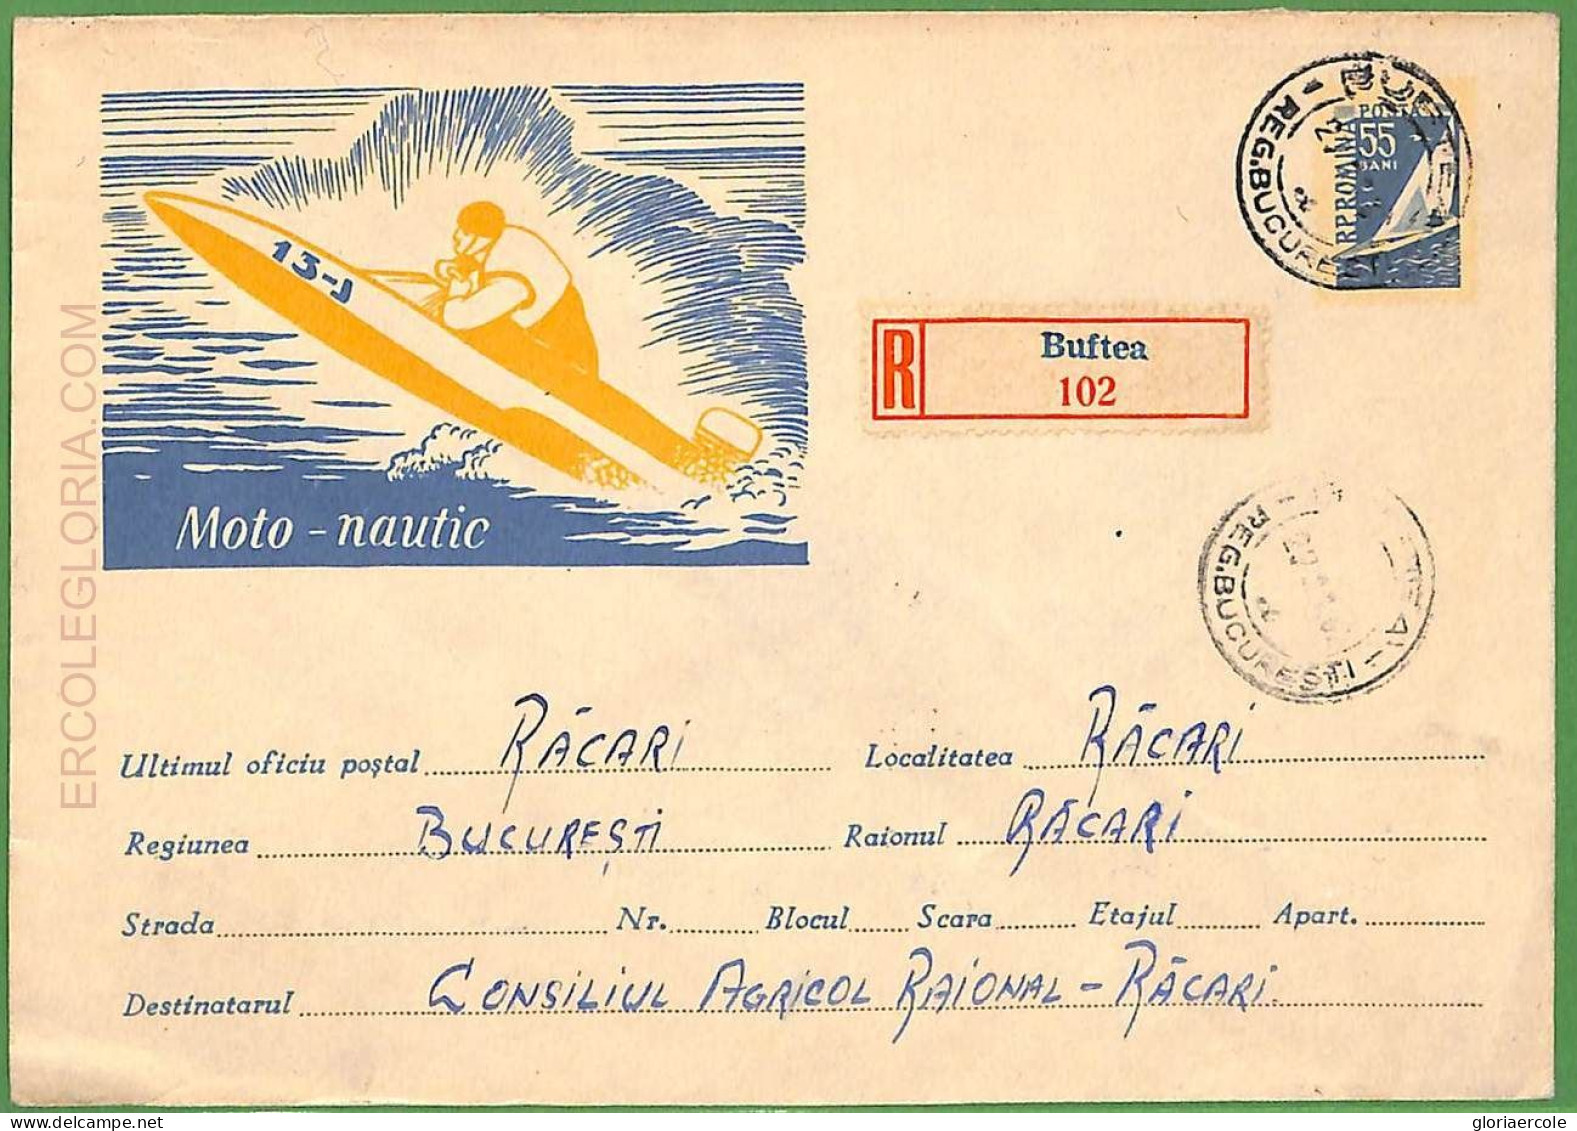 BUFTEA
REG. BUCUREȘTI
POSTA
55
BANI
RPROMINA
13-J
R
Buftea
102
Moto - nautic
REG. BUCUREȘTI
Ultimul oficiu poștal RĂCARI Localitatea RĂCARI
Regiunea BUCUREȘTI Raionul RĂCARI
Strada Nr. Blocul Scara Etajul Apart.
Destinatarul CONSILIUL AGRICOL RAIONAL - RĂCARI
ERCOLEGLORIA.COM
gloriaercole